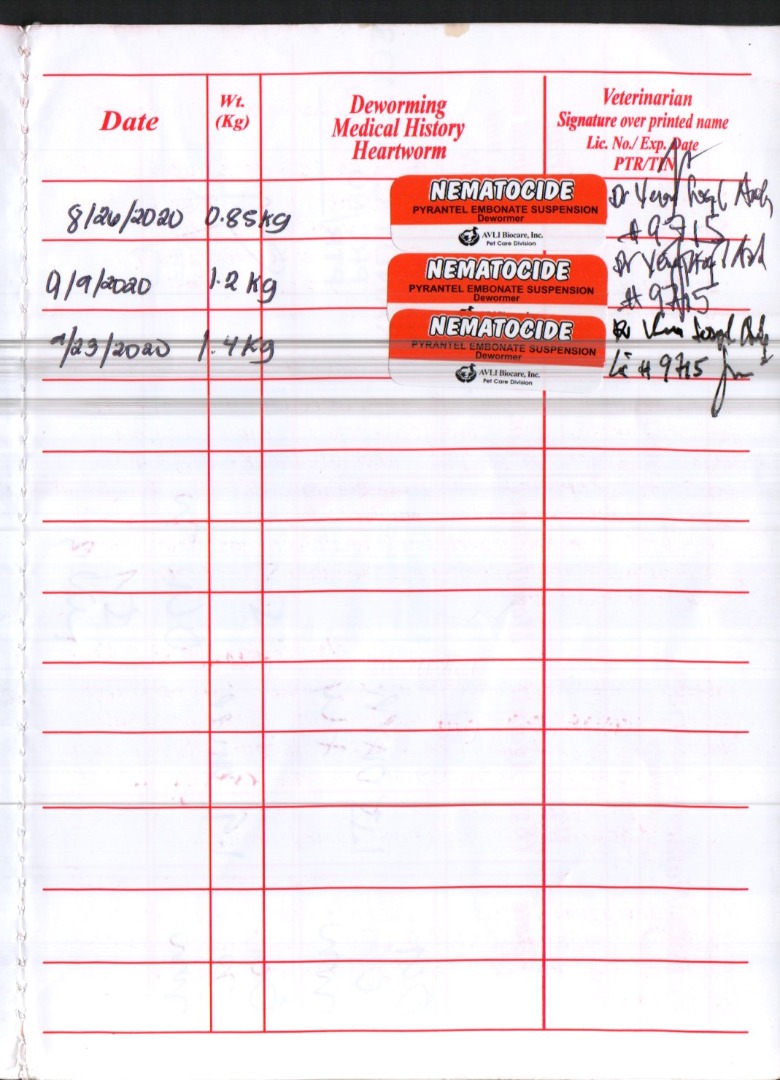 Date
Wt.
(Kg)
Deworming
Medical History
Heartworm
Veterinarian
Signature over printed name
Lic. No./ Exp. Date
PTR/TIN
8/26/2020 0.85Kg
NEMATOCIDE
PYRANTEL EMBONATE SUSPENSION
Dewormer
AVLI Biocare, Inc.
Pet Care Division
Dr
# 9715
9/9/2020 1.2 Kg
NEMATOCIDE
PYRANTEL EMBONATE SUSPENSION
Dewormer
Dr
# 9715
9/23/2020 1.4Kg
NEMATOCIDE
PYRANTEL EMBONATE SUSPENSION
Dewormer
AVLI Biocare, Inc.
Pet Care Division
# 9715